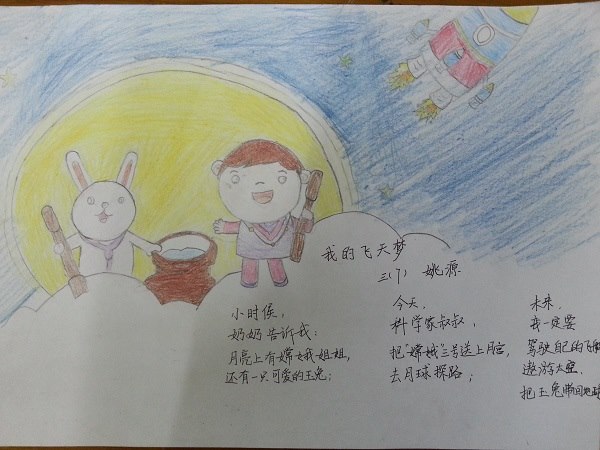 我的飞天梦
三(7) 姚源
小时候，
奶奶告诉我：
月亮上有嫦娥姐姐，
还有一只可爱的玉兔；
今天，
科学家叔叔，
把“嫦娥”三号送上月宫，
去月球探路；
未来，
我一定要
驾驶自己的飞船
遨游太空，
把玉兔带回地球